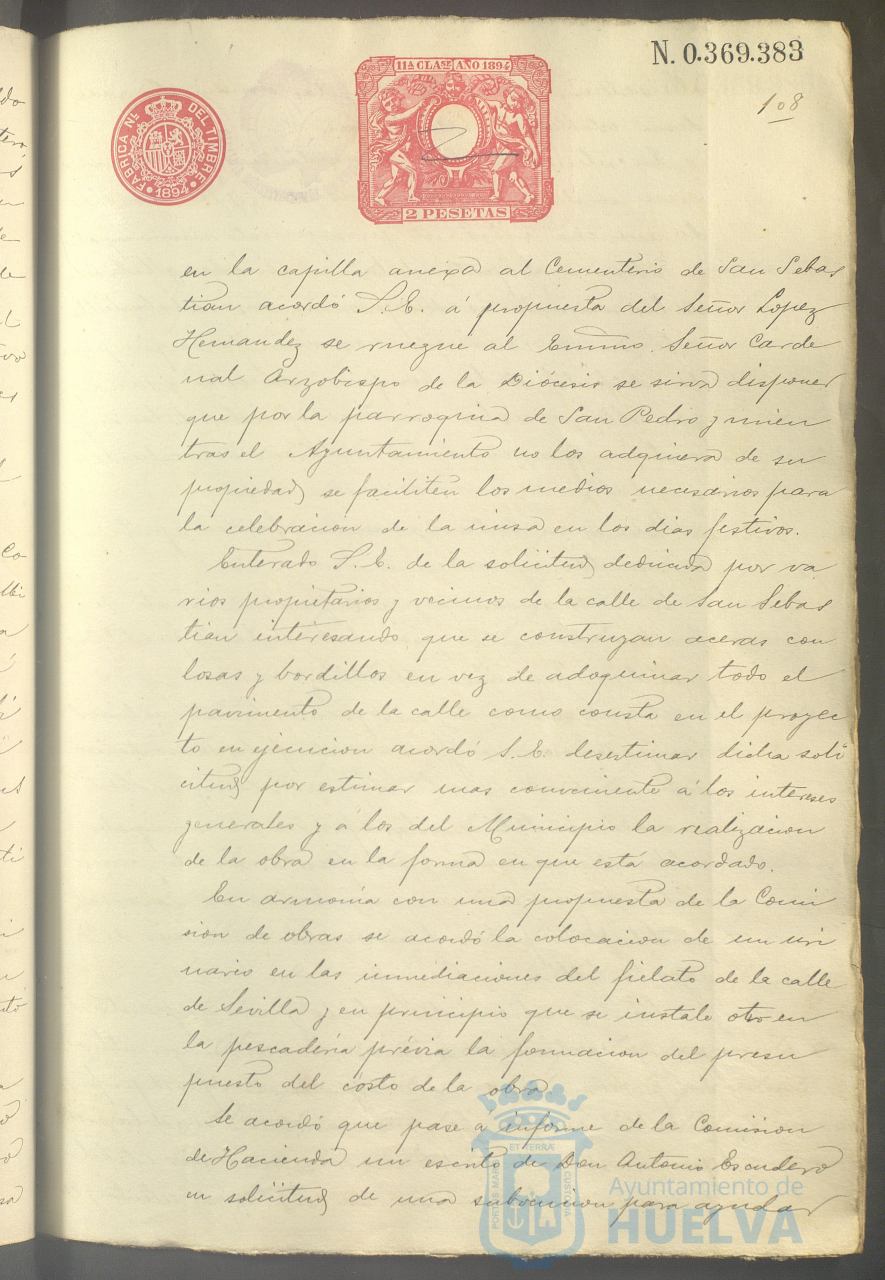 N. 0.369.383
11ª CLASE AÑO 1894
108
FABRICA Nal DEL TIMBRE
1894
2 PESETAS
en la capilla anexa al Cementerio de San Sebas
tian acordó S.E. á propuesta del Señor Lopez
Hernandez se ruegue al Emmo. Señor Carde
nal Arzobispo de la Diócesis se sirva disponer
que por la parroquia de San Pedro y mien
tras el Ayuntamiento no los adquiera de su
propiedad se faciliten los medios necesarios para
la celebracion de la misa en los dias festivos.
Enterado S.E. de la solicitud deducida por va
rios propietarios y vecinos de la calle de San Sebas
tian interesando que se construyan aceras con
losas y bordillos en vez de adoquinar todo el
pavimento de la calle como consta en el proyec
to en ejecucion acordó S.E. desestimar dicha soli
citud por estimar mas conveniente á los intereses
generales y á los del Municipio la realizacion
de la obra en la forma en que está acordado.
En armonia con una propuesta de la Comi
sion de obras se acordó la colocacion de un uri
nario en las inmediaciones del fielato de la calle
de Sevilla y en principio que se instale otro en
la pescaderia prévia la formacion del presu
puesto del costo de la obra
Se acordó que pase a informe de la Comision
de Hacienda un escrito de Don Antonio Escudero
en solicitud de una subvencion para ayudar
PORTUS MARIS ET TERRÆ CUSTODIA
Ayuntamiento de
HUELVA